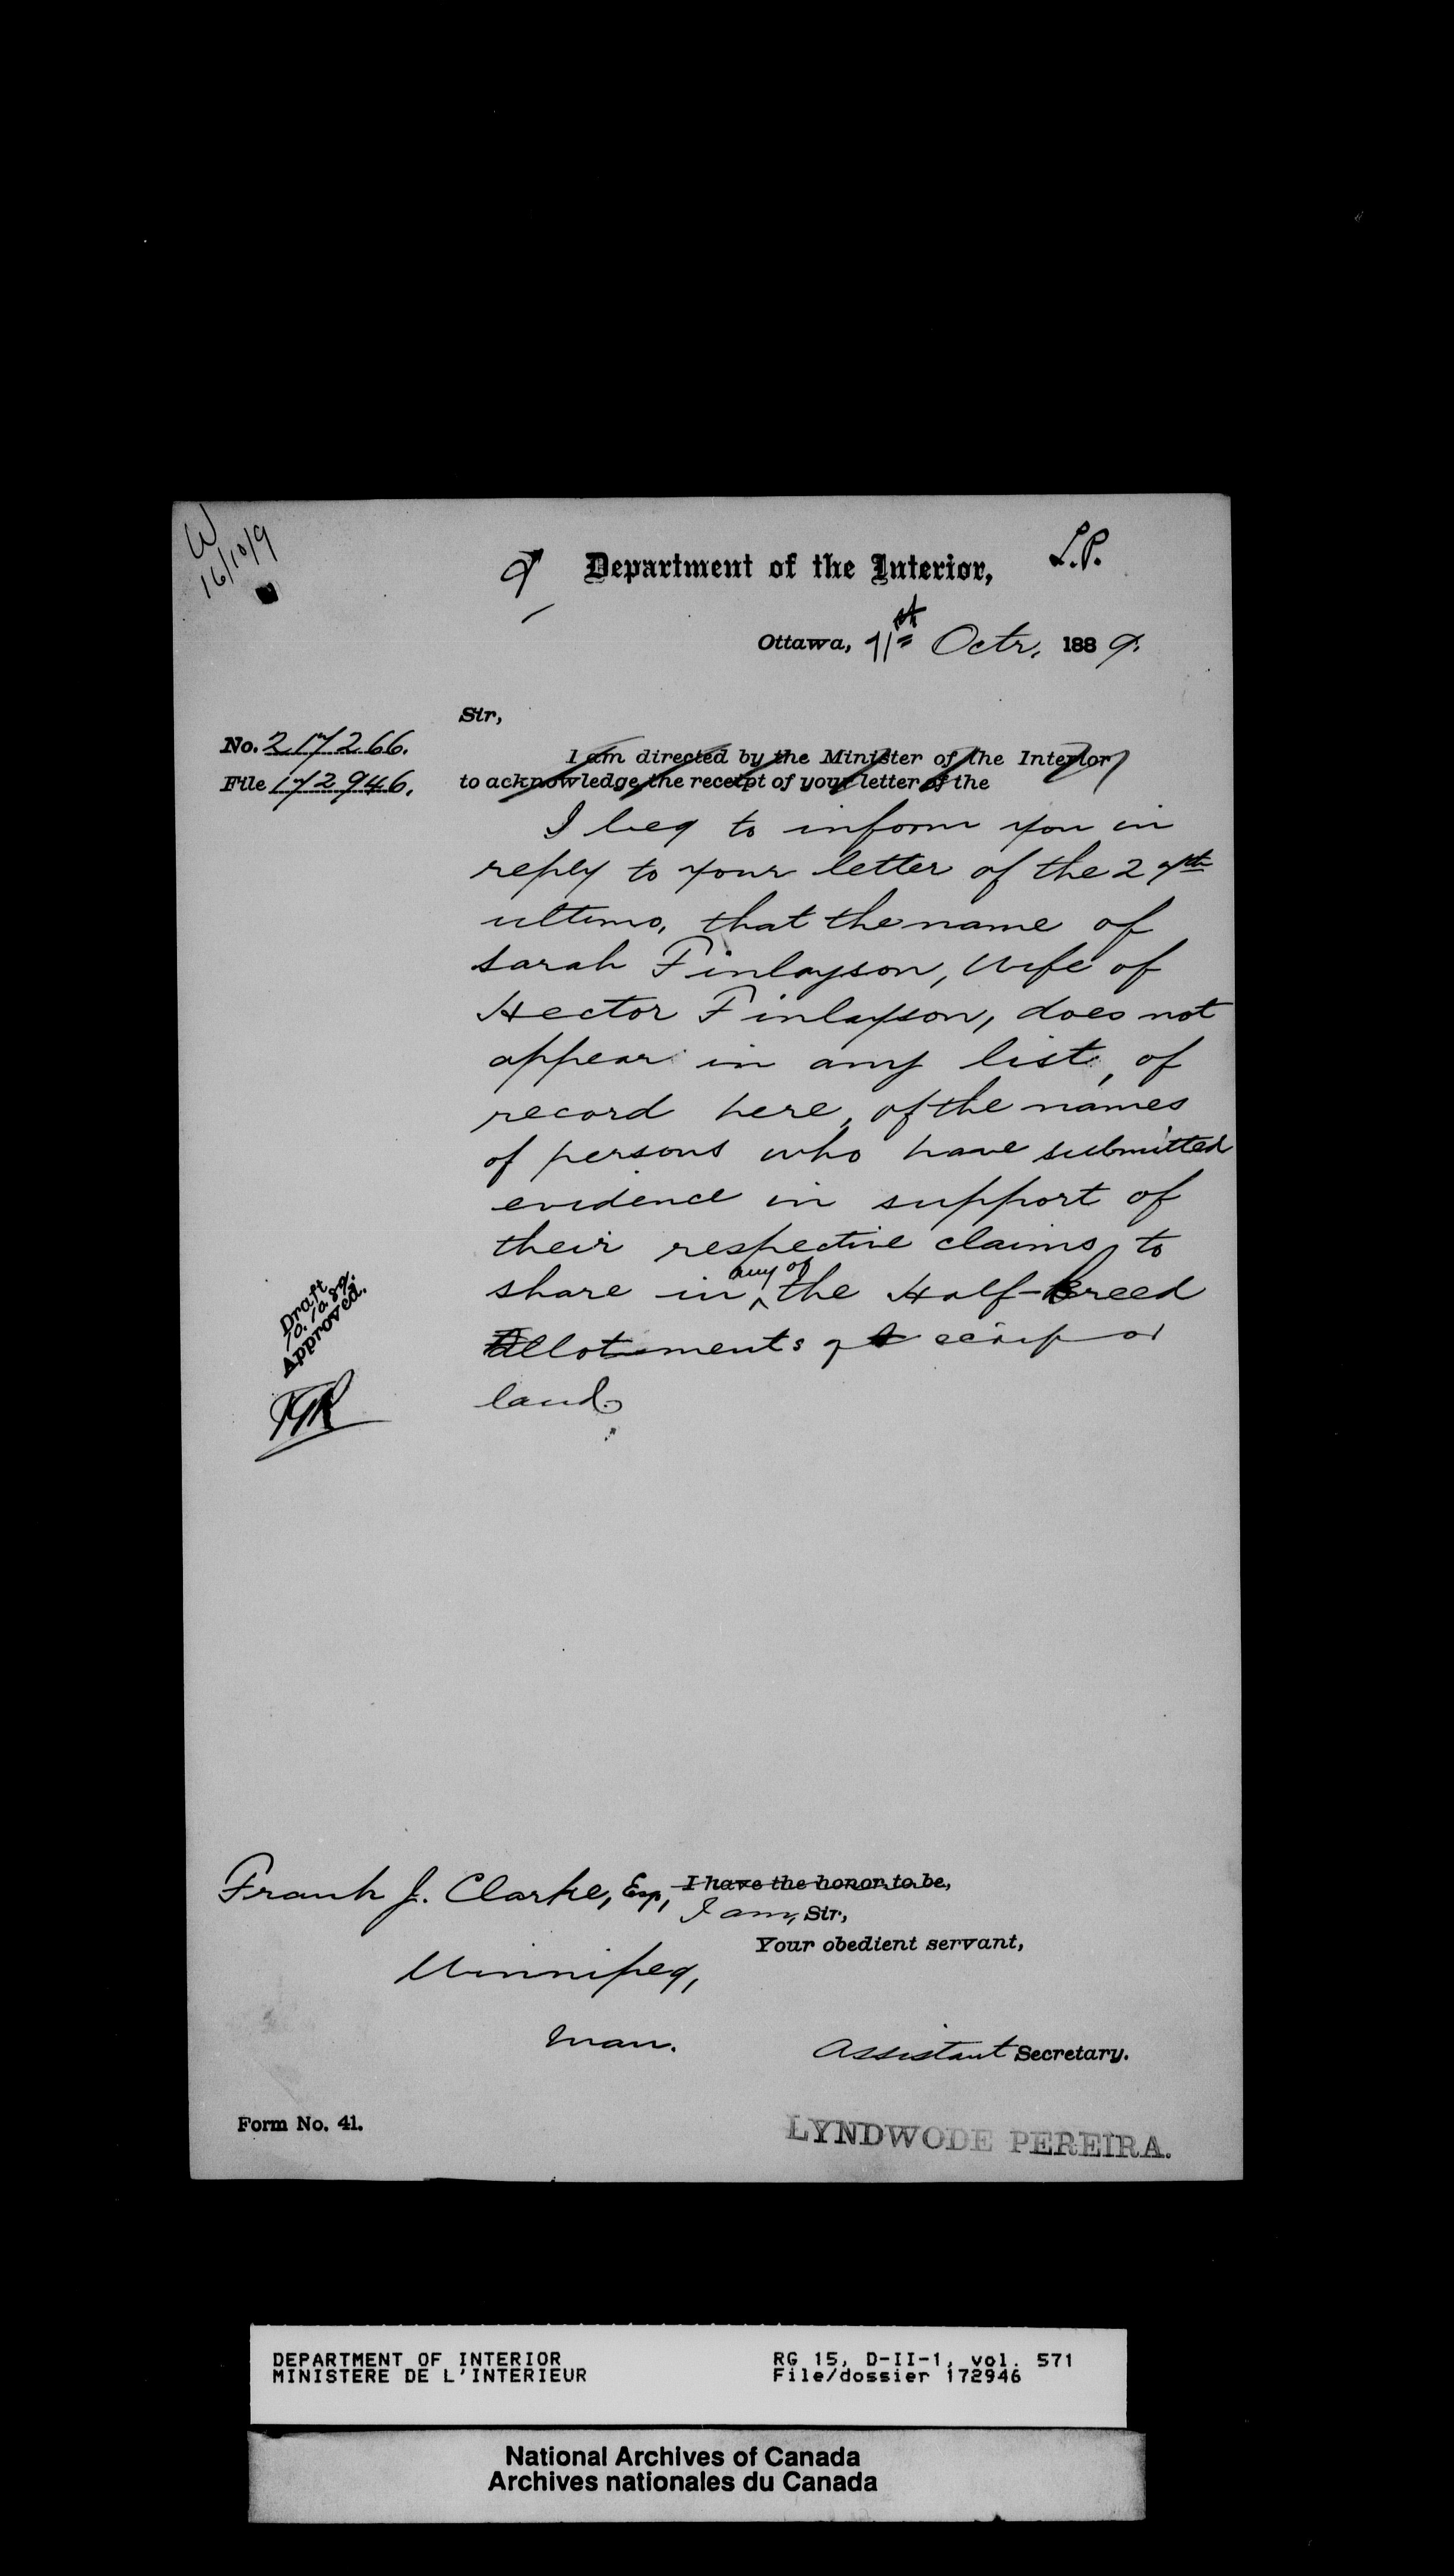 W
16/10/9
Department of the Interior,
L.P.
Ottawa, 11th Octr. 1889.
Sir,
No. 217266.
File 172946.
I am directed by the Minister of the Interior
to acknowledge the receipt of your letter of the
I beg to inform you in
reply to your letter of the 27th
ultimo, that the name of
Sarah Finlayson, Wife of
Hector Finlayson, does not
appear in any list, of
record here, of the names
of persons who have submitted
evidence in support of
their respective claims to
share in any of the Half-Breed
Allotments of scrip or
land.
Draft
10.10.89.
Approved.
Frank J. Clarke, Esq,
I have the honor to be,
I am, Sir,
Your obedient servant,
Winnipeg,
Man.
Assistant Secretary.
Form No. 41.
LYNDWODE PEREIRA.
DEPARTMENT OF INTERIOR
MINISTERE DE L'INTERIEUR
RG 15, D-II-1, vol. 571
File/dossier 172946
National Archives of Canada
Archives nationales du Canada